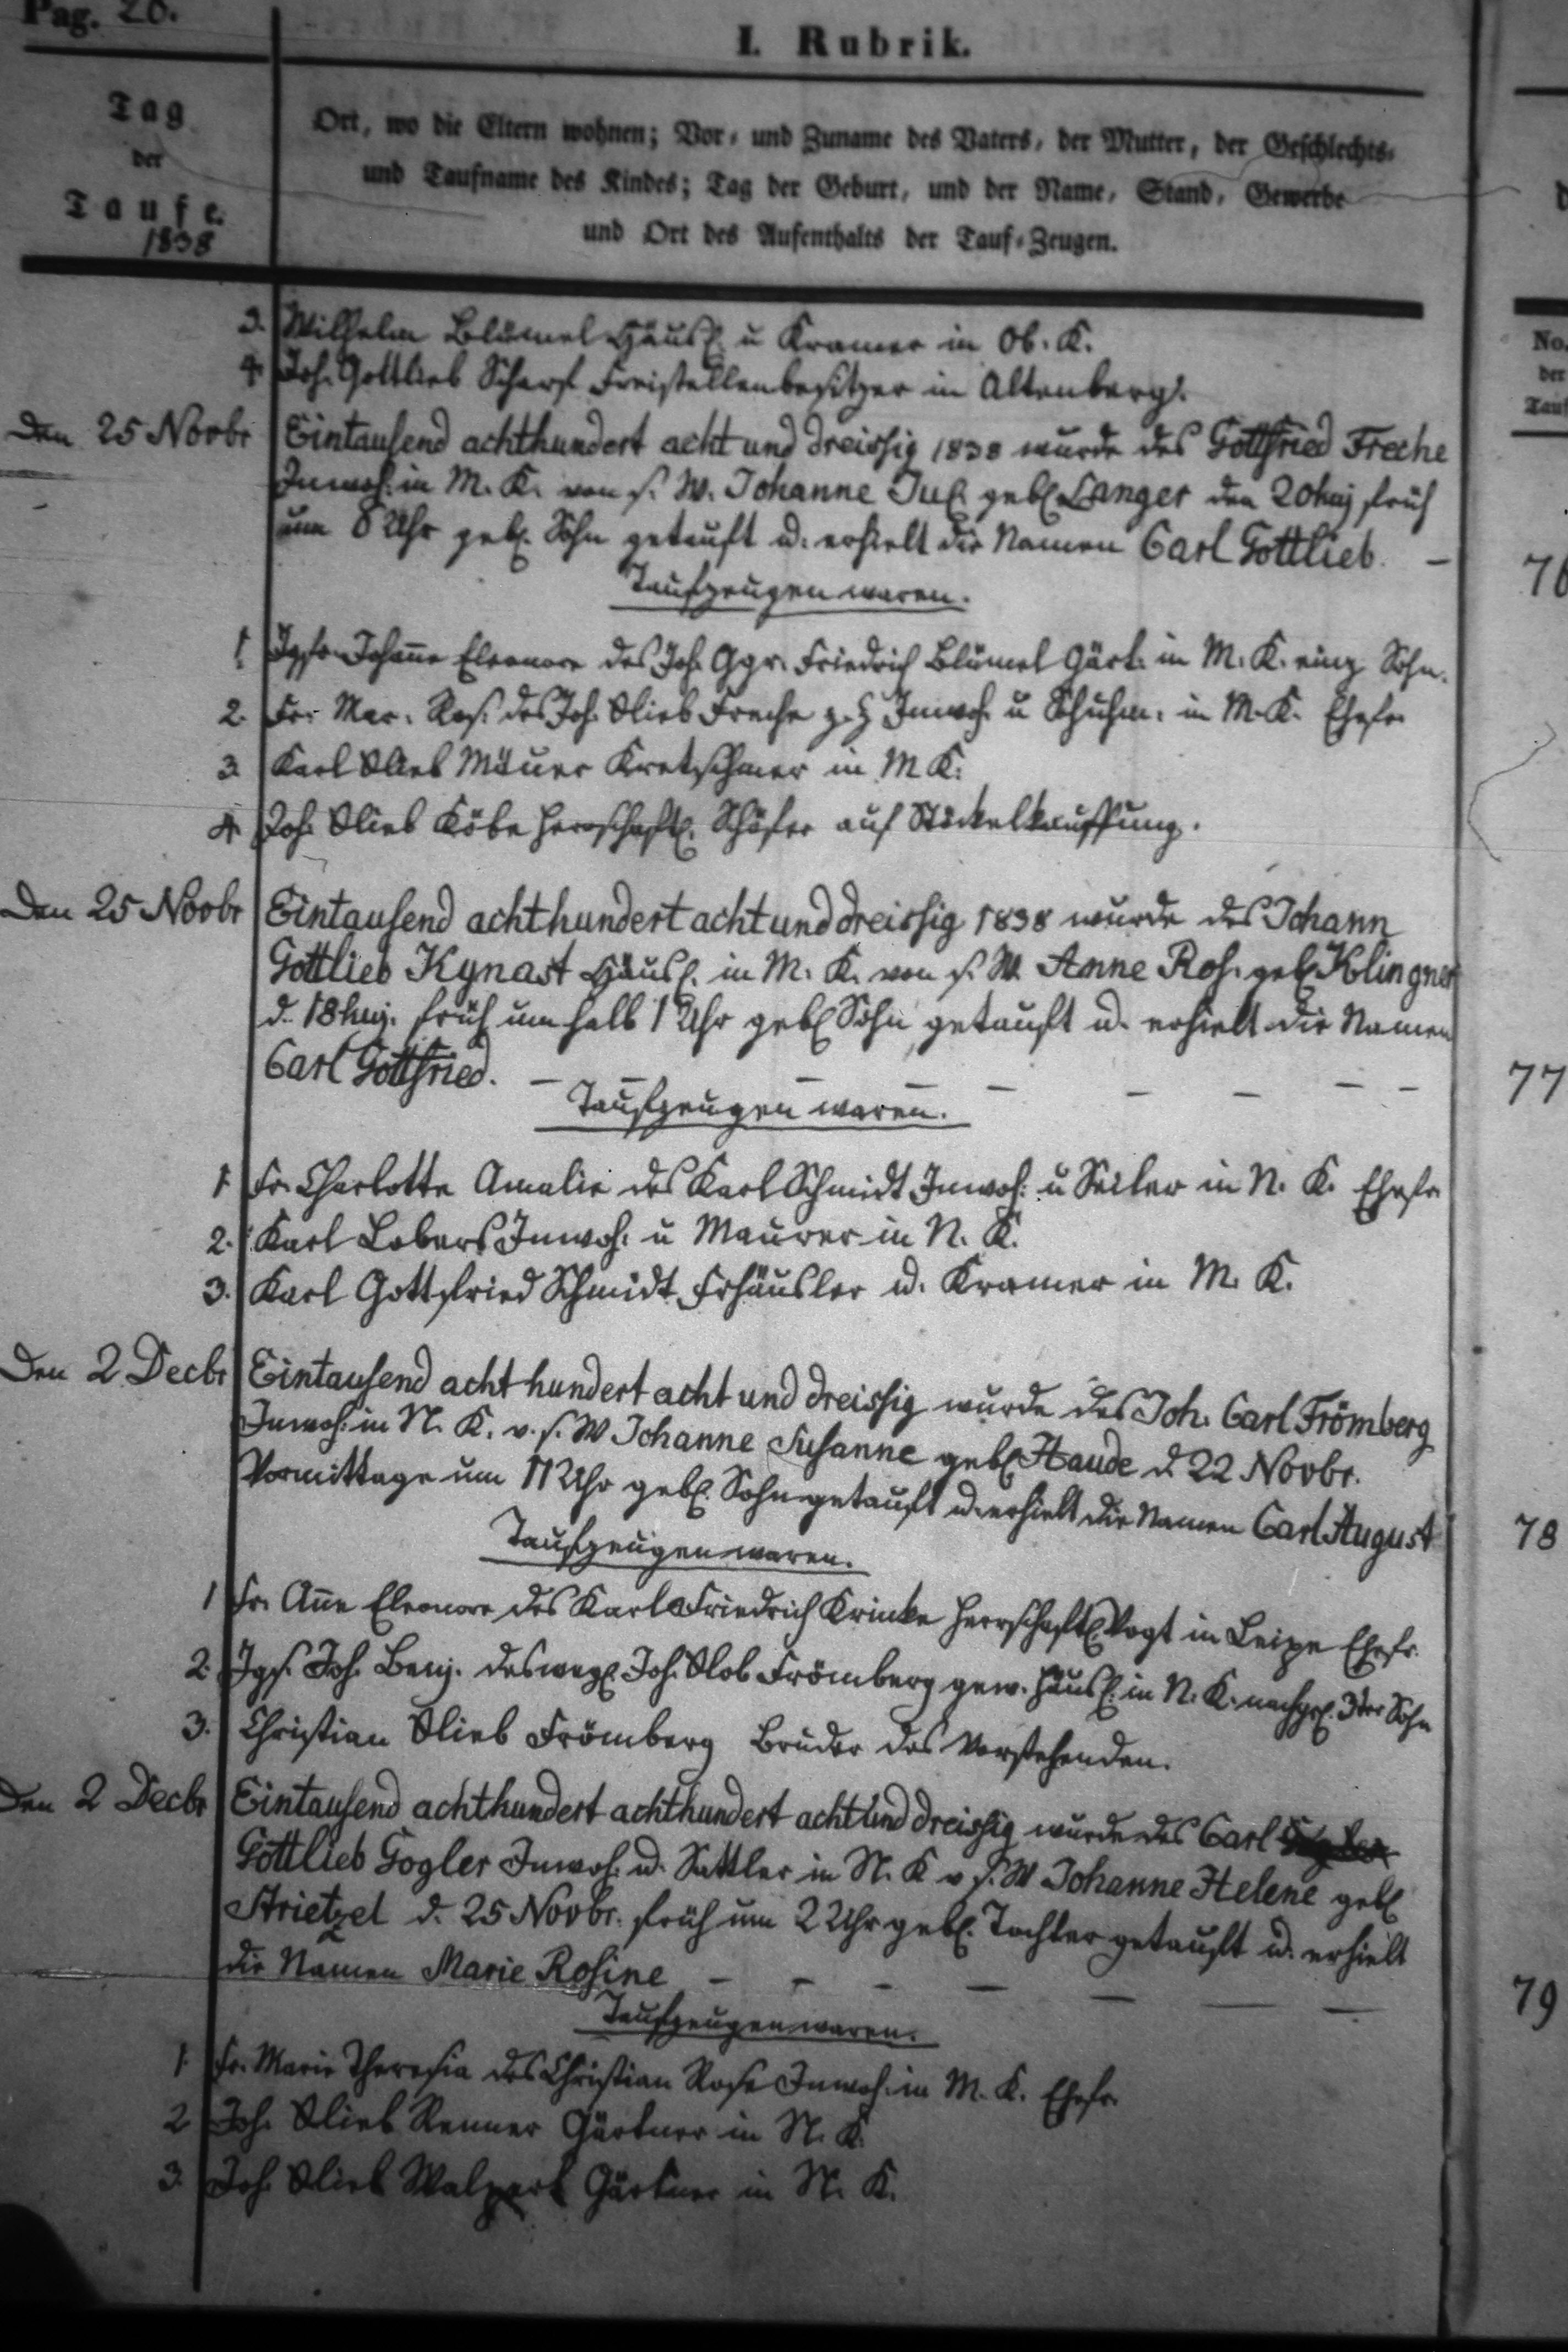 Pag. 20.
I. Rubrik.
Tag
der
Taufe.
1838
Ort, wo die Eltern wohnen; Vor- und Zuname des Vaters, der Mutter, der Geschlechts-
und Taufname des Kindes; Tag der Geburt, und der Name, Stand, Gewerbe
und Ort des Aufenthalts der Tauf-Zeugen.
No.
der
Tauf
3. Wilhelm Blümel Häusl. u Kramer in Ob. K.
4. Joh. Gottlieb Scharf Freistellenbesitzer in Altenberg.
Den 25 Novbr Eintausend achthundert acht und dreissig 1838 wurde des Gottfried Freche
Inwoh. in M. K. von s. W. Johanne Jul. gebl Langer den 20 huj früh
um 8 Uhr gebl. Sohn getauft u. erhielt die Namen Carl Gottlieb. –
76
Taufzeugen waren.
1. Johanne Eleonore des Joh. Ggr. Friedrich Blümel Gärt. in M. K. einz
2. Fr. Mar. Ros. des Joh. Glieb Freche z. Z Inwoh. u Schuhm. in M. K. Ehefr.
3. Karl Glieb Mäuer Kretschmer in M K.
4. Joh. Glieb Köbe herrschaftl. Schäfer auf Stöckelkauffung.
Den 25 Novbr Eintausend achthundert acht und dreissig 1838 wurde des Johann
Gottlieb Kynast Häusl. in M. K. von s. W. Anne Ros. gebl Klingner
d. 18 huj. früh um halb 1 Uhr gebl Sohn getauft u. erhielt die Namen
Carl Gottfried. – – – – – – – –
77
Taufzeugen waren.
1. Fr. Charlotte Amalie des Karl Schmidt Inwoh. u Seiler in N. K. Ehefr.
2. Karl Lobers Inwoh. u Maurer in N. K.
3. Karl Gottfried Schmidt Frhäusler u. Kramer in M. K.
Den 2 Decbr Eintausend acht hundert acht und dreissig wurde des Joh. Carl Frömberg
Inwoh. in N. K. v. s. W Johanne Susanne gebl Haude d 22 Novbr.
Vormittage um 11 Uhr gebl. Sohn getauft u. erhielt die Namen Carl August
78
Taufzeugen waren.
1 Fr. Anne Eleonore des Karl Friedrich Krinke herrschaftl. Vogt in Leipe Ehefr.
2. Jgs. Joh. Benj. des wegl. Joh. Glob Frömberg gew. Häusl. in N. K. nachgel. 3ter Sohn
3. Christian Glieb Frömberg Bruder des Vorstehenden.
Den 2 Decbr Eintausend achthundert achthundert acht und dreissig wurde des Carl
Gottlieb Gogler Inwoh. u. Sattler in N. K v s. W Johanne Helene gebl
Strietzel d. 25 Novbr. früh um 2 Uhr gebl. Tochter getauft u. erhielt
die Namen Marie Rosine – – – – – – –
79
Taufzeugen waren.
1. Fr. Marie Theresia des Christian Rose Inwoh. in M. K. Ehefr.
2 Joh. Glieb Renner Gärtner in N. K.
3. Joh. Glieb Walpert Gärtner in N. K.